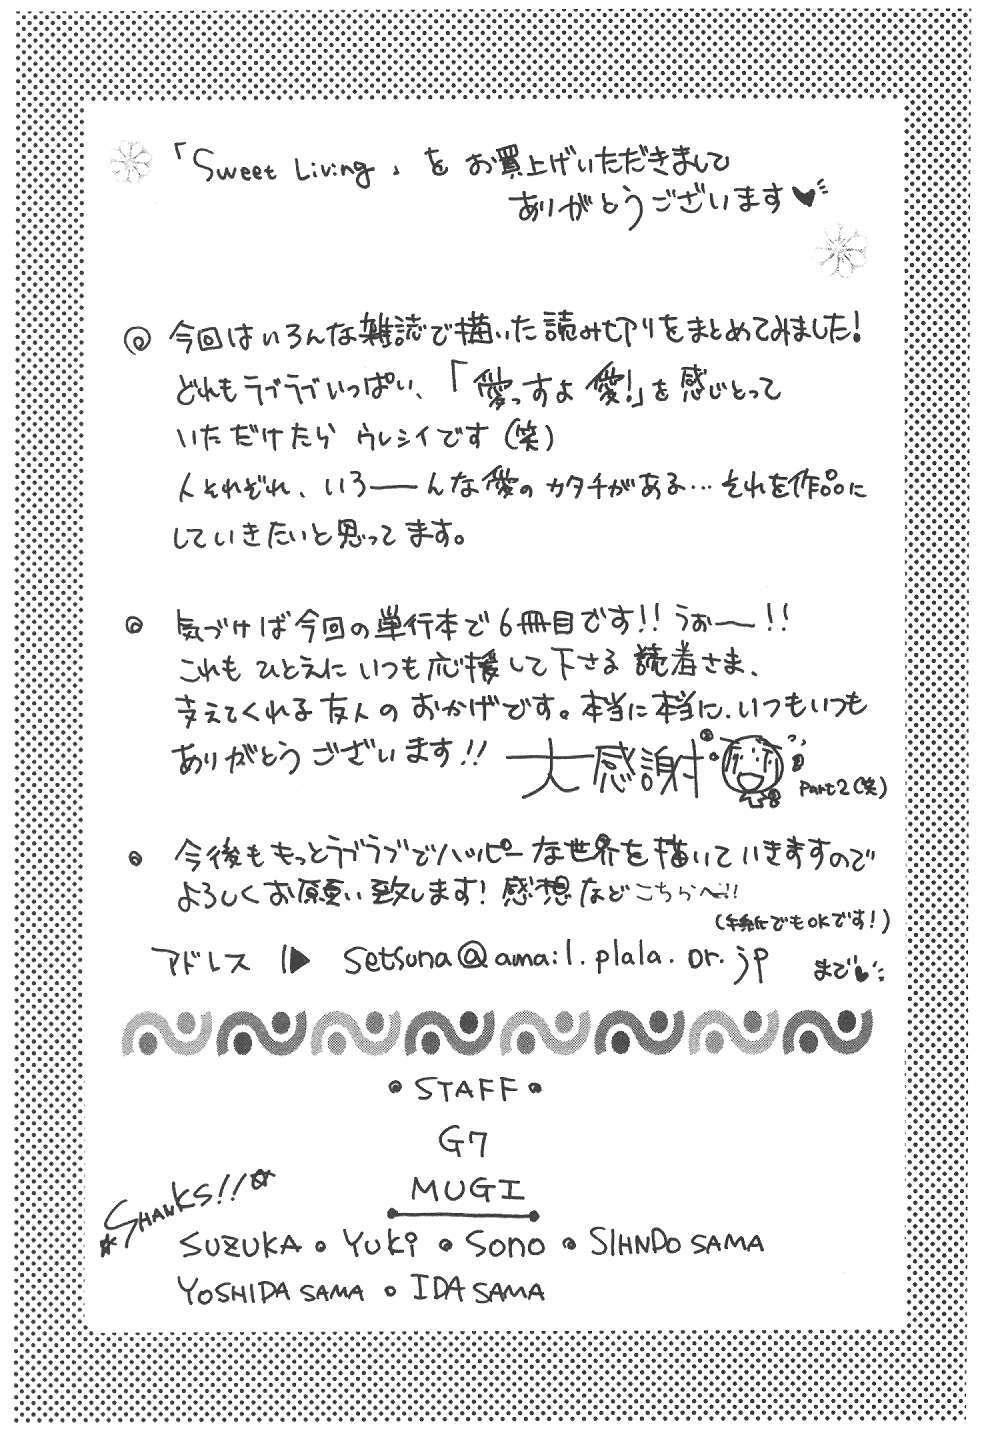 「Sweet Living」をお買上げいただきまして
ありがとうございます♥
◎ 今回はいろんな雑誌で描いた読み切りをまとめてみました!
どれもラブラブいっぱい、「愛っすよ愛!」を感じとって
いただけたら ウレシイです(笑)
人それぞれ、いろーーんな愛のカタチがある…それを作品に
していきたいと思ってます。
◎ 気づけば今回の単行本で6冊目です!! うぉ〜!!
これも ひとえに いつも応援して下さる 読者さま、
支えてくれる友人の おかげです。本当に本当に、いつもいつも
ありがとうございます!!
大感謝
Part2(笑)
◎ 今後も もっとラブラブでハッピーな世界を描いていきますので
よろしくお願い致します! 感想などこちらへ!!
(手紙でもOKです!)
アドレス ▶ setsuna@amail.plala.or.jp まで♥
• STAFF •
G7
MUGI
SHANKS!!☆
SUZUKA • YUKi • SONO • SIHNDO SAMA
YOSHIDA SAMA • IDA SAMA